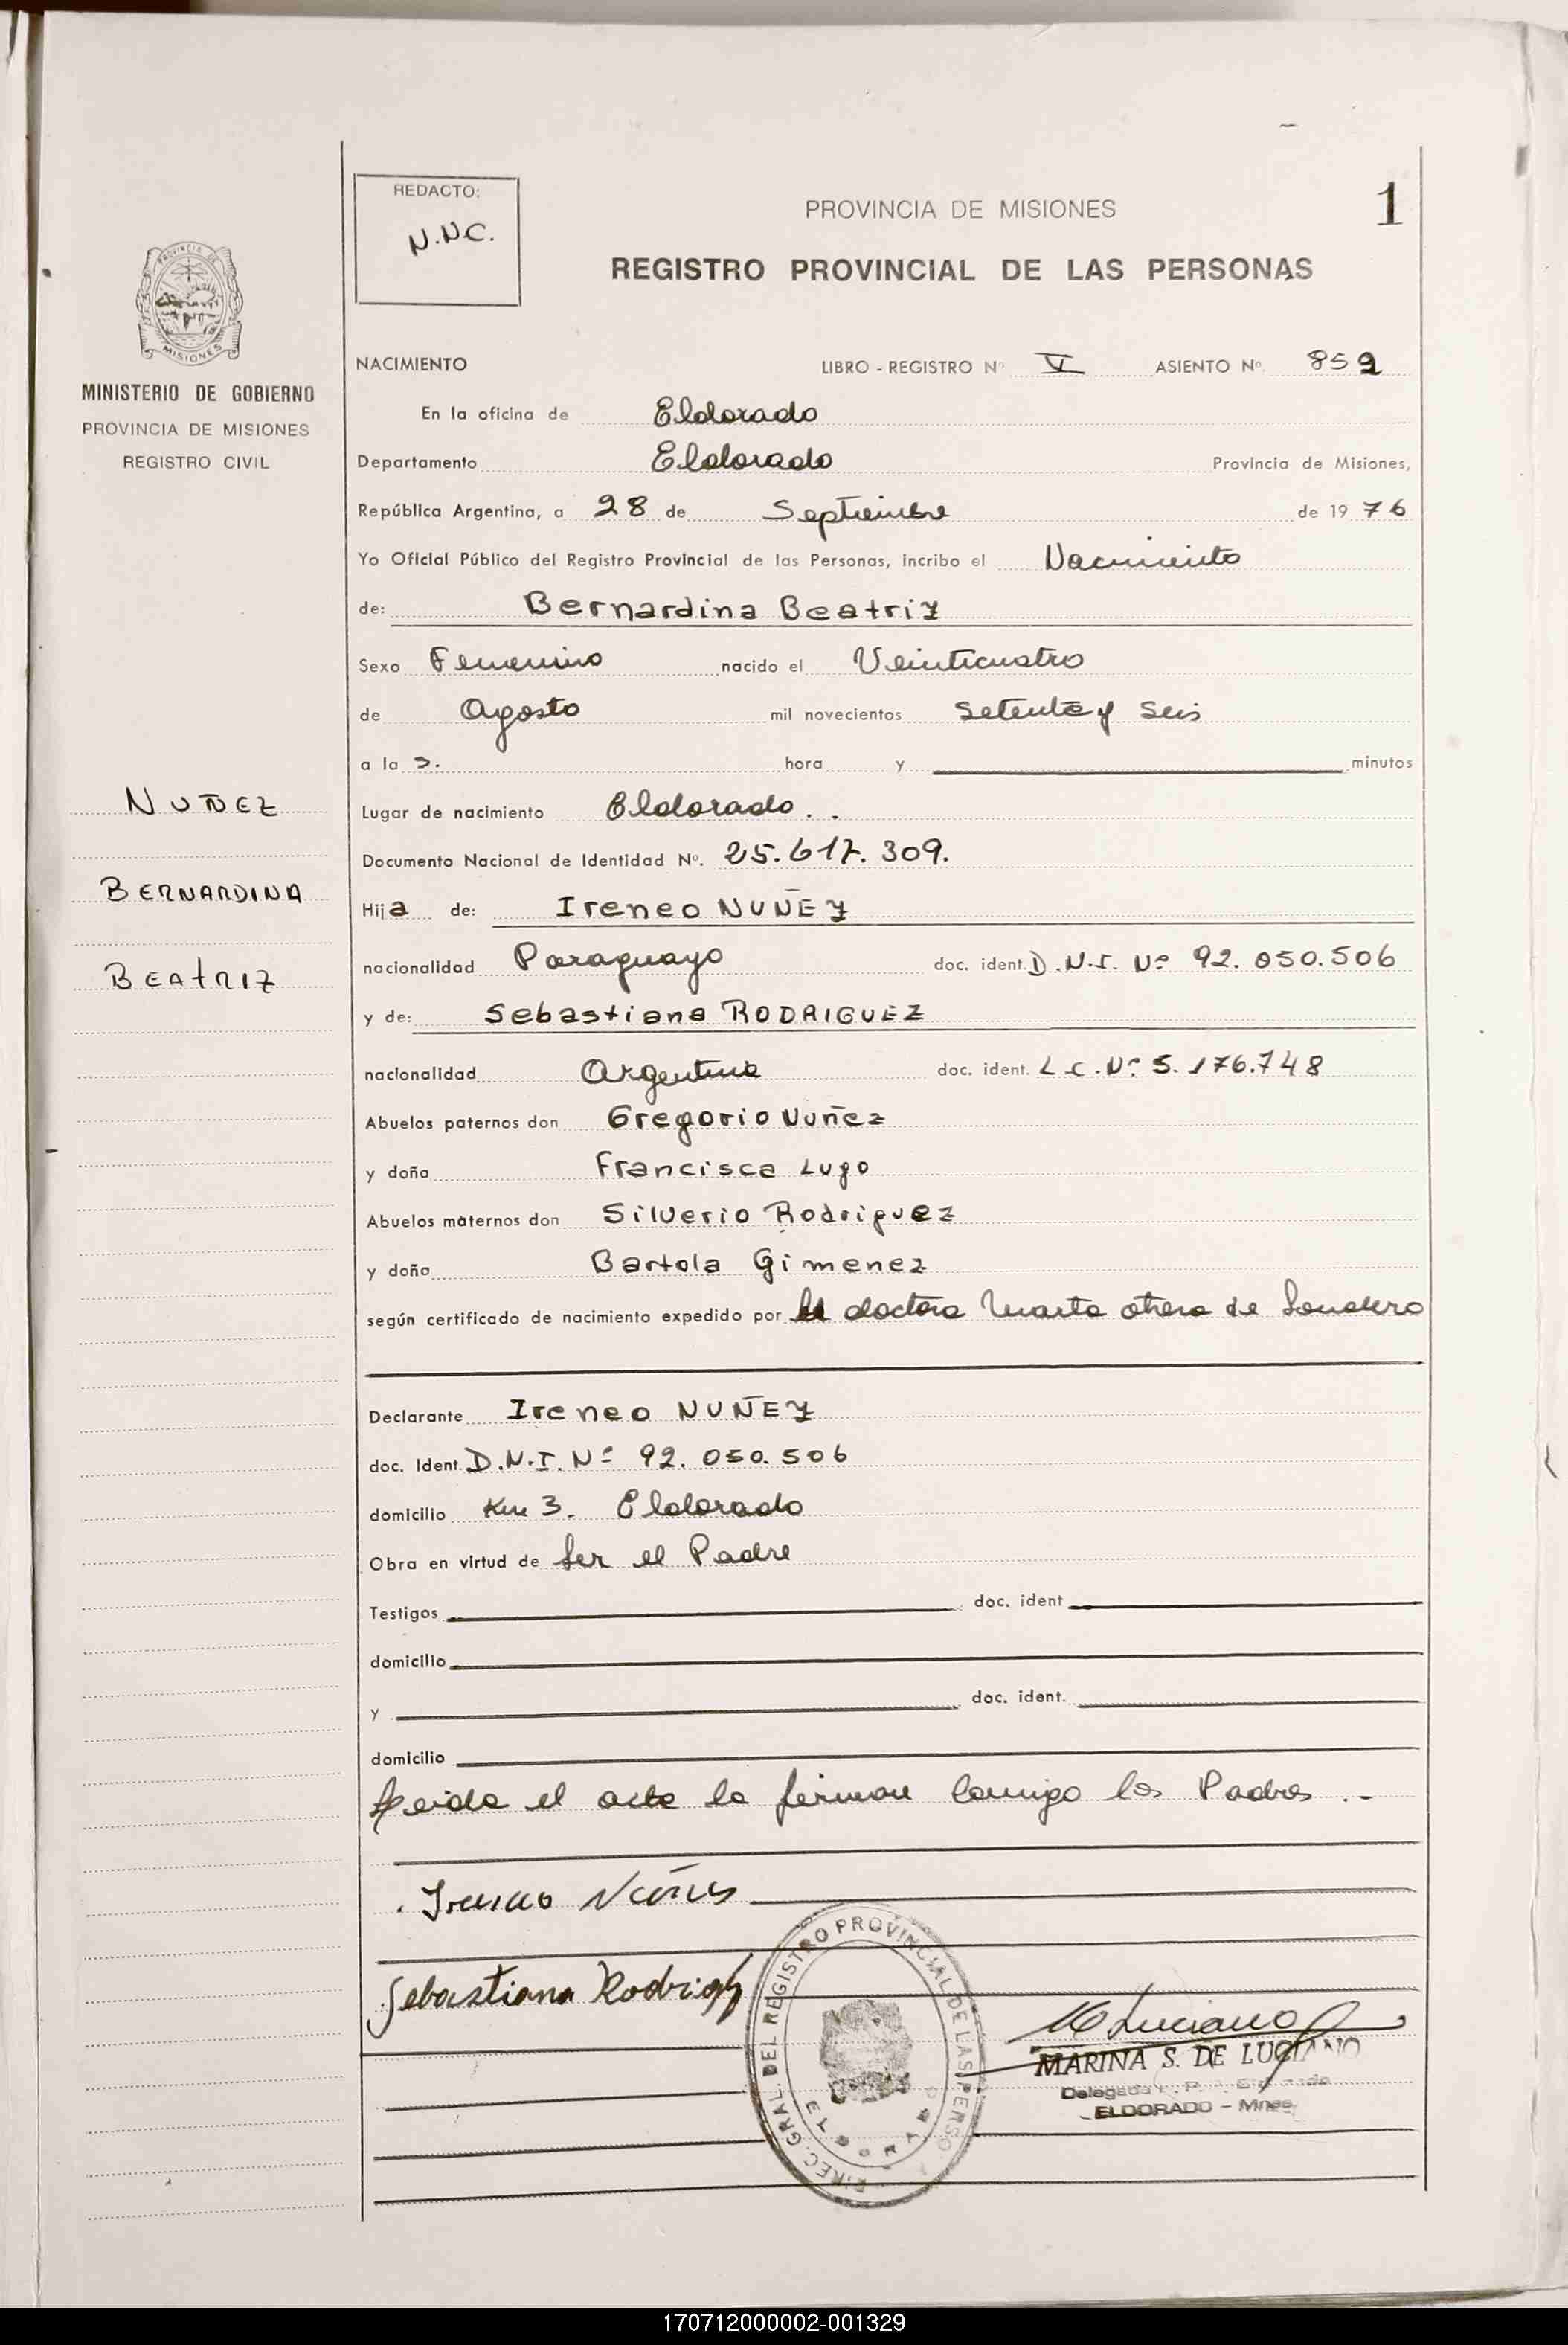 REDACTO:
N.N.C.
PROVINCIA DE MISIONES
1
REGISTRO PROVINCIAL DE LAS PERSONAS
PROVINCIA DE
MISIONES
MINISTERIO DE GOBIERNO
PROVINCIA DE MISIONES
REGISTRO CIVIL
NUÑEZ
BERNARDINA
BEATRIZ
NACIMIENTO LIBRO - REGISTRO Nº V ASIENTO Nº 859
En la oficina de Eldorado
Departamento Eldorado Provincia de Misiones,
República Argentina, a 28 de Septiembre de 1976
Yo Oficial Público del Registro Provincial de las Personas, incribo el Nacimiento
de: Bernardina Beatriz
Sexo Femenino nacido el Veinticuatro
de Agosto mil novecientos setenta y seis
a la s. hora y minutos
Lugar de nacimiento Eldorado..
Documento Nacional de Identidad Nº. 25.617.309.
Hija de: Ireneo NUÑEZ
nacionalidad Paraguayo doc. ident. D.N.I. Nº 92.050.506
y de: Sebastiana RODRIGUEZ
nacionalidad Argentina doc. ident. L.C.Nº 5.176.748
Abuelos paternos don Gregorio Nuñez
y doña Francisca Lugo
Abuelos maternos don Silverio Rodriguez
y doña Bartola Gimenez
según certificado de nacimiento expedido por doctora Marta de
Declarante Ireneo NUÑEZ
doc. Ident. D.N.I. Nº 92.050.506
domicilio Km 3. Eldorado
Obra en virtud de Ser el Padre
Testigos doc. ident
domicilio
y doc. ident.
domicilio
Leida el acta la firman conmigo los Padres..-
Ireneo Nuñes
Sebastiana
DIREC. GRAL. DEL REGISTRO PROVINCIAL DE LAS PERSO
ELDORADO
M Luciano
MARINA S. DE LUCIANO
ELDORADO - Mnes.
170712000002-001329